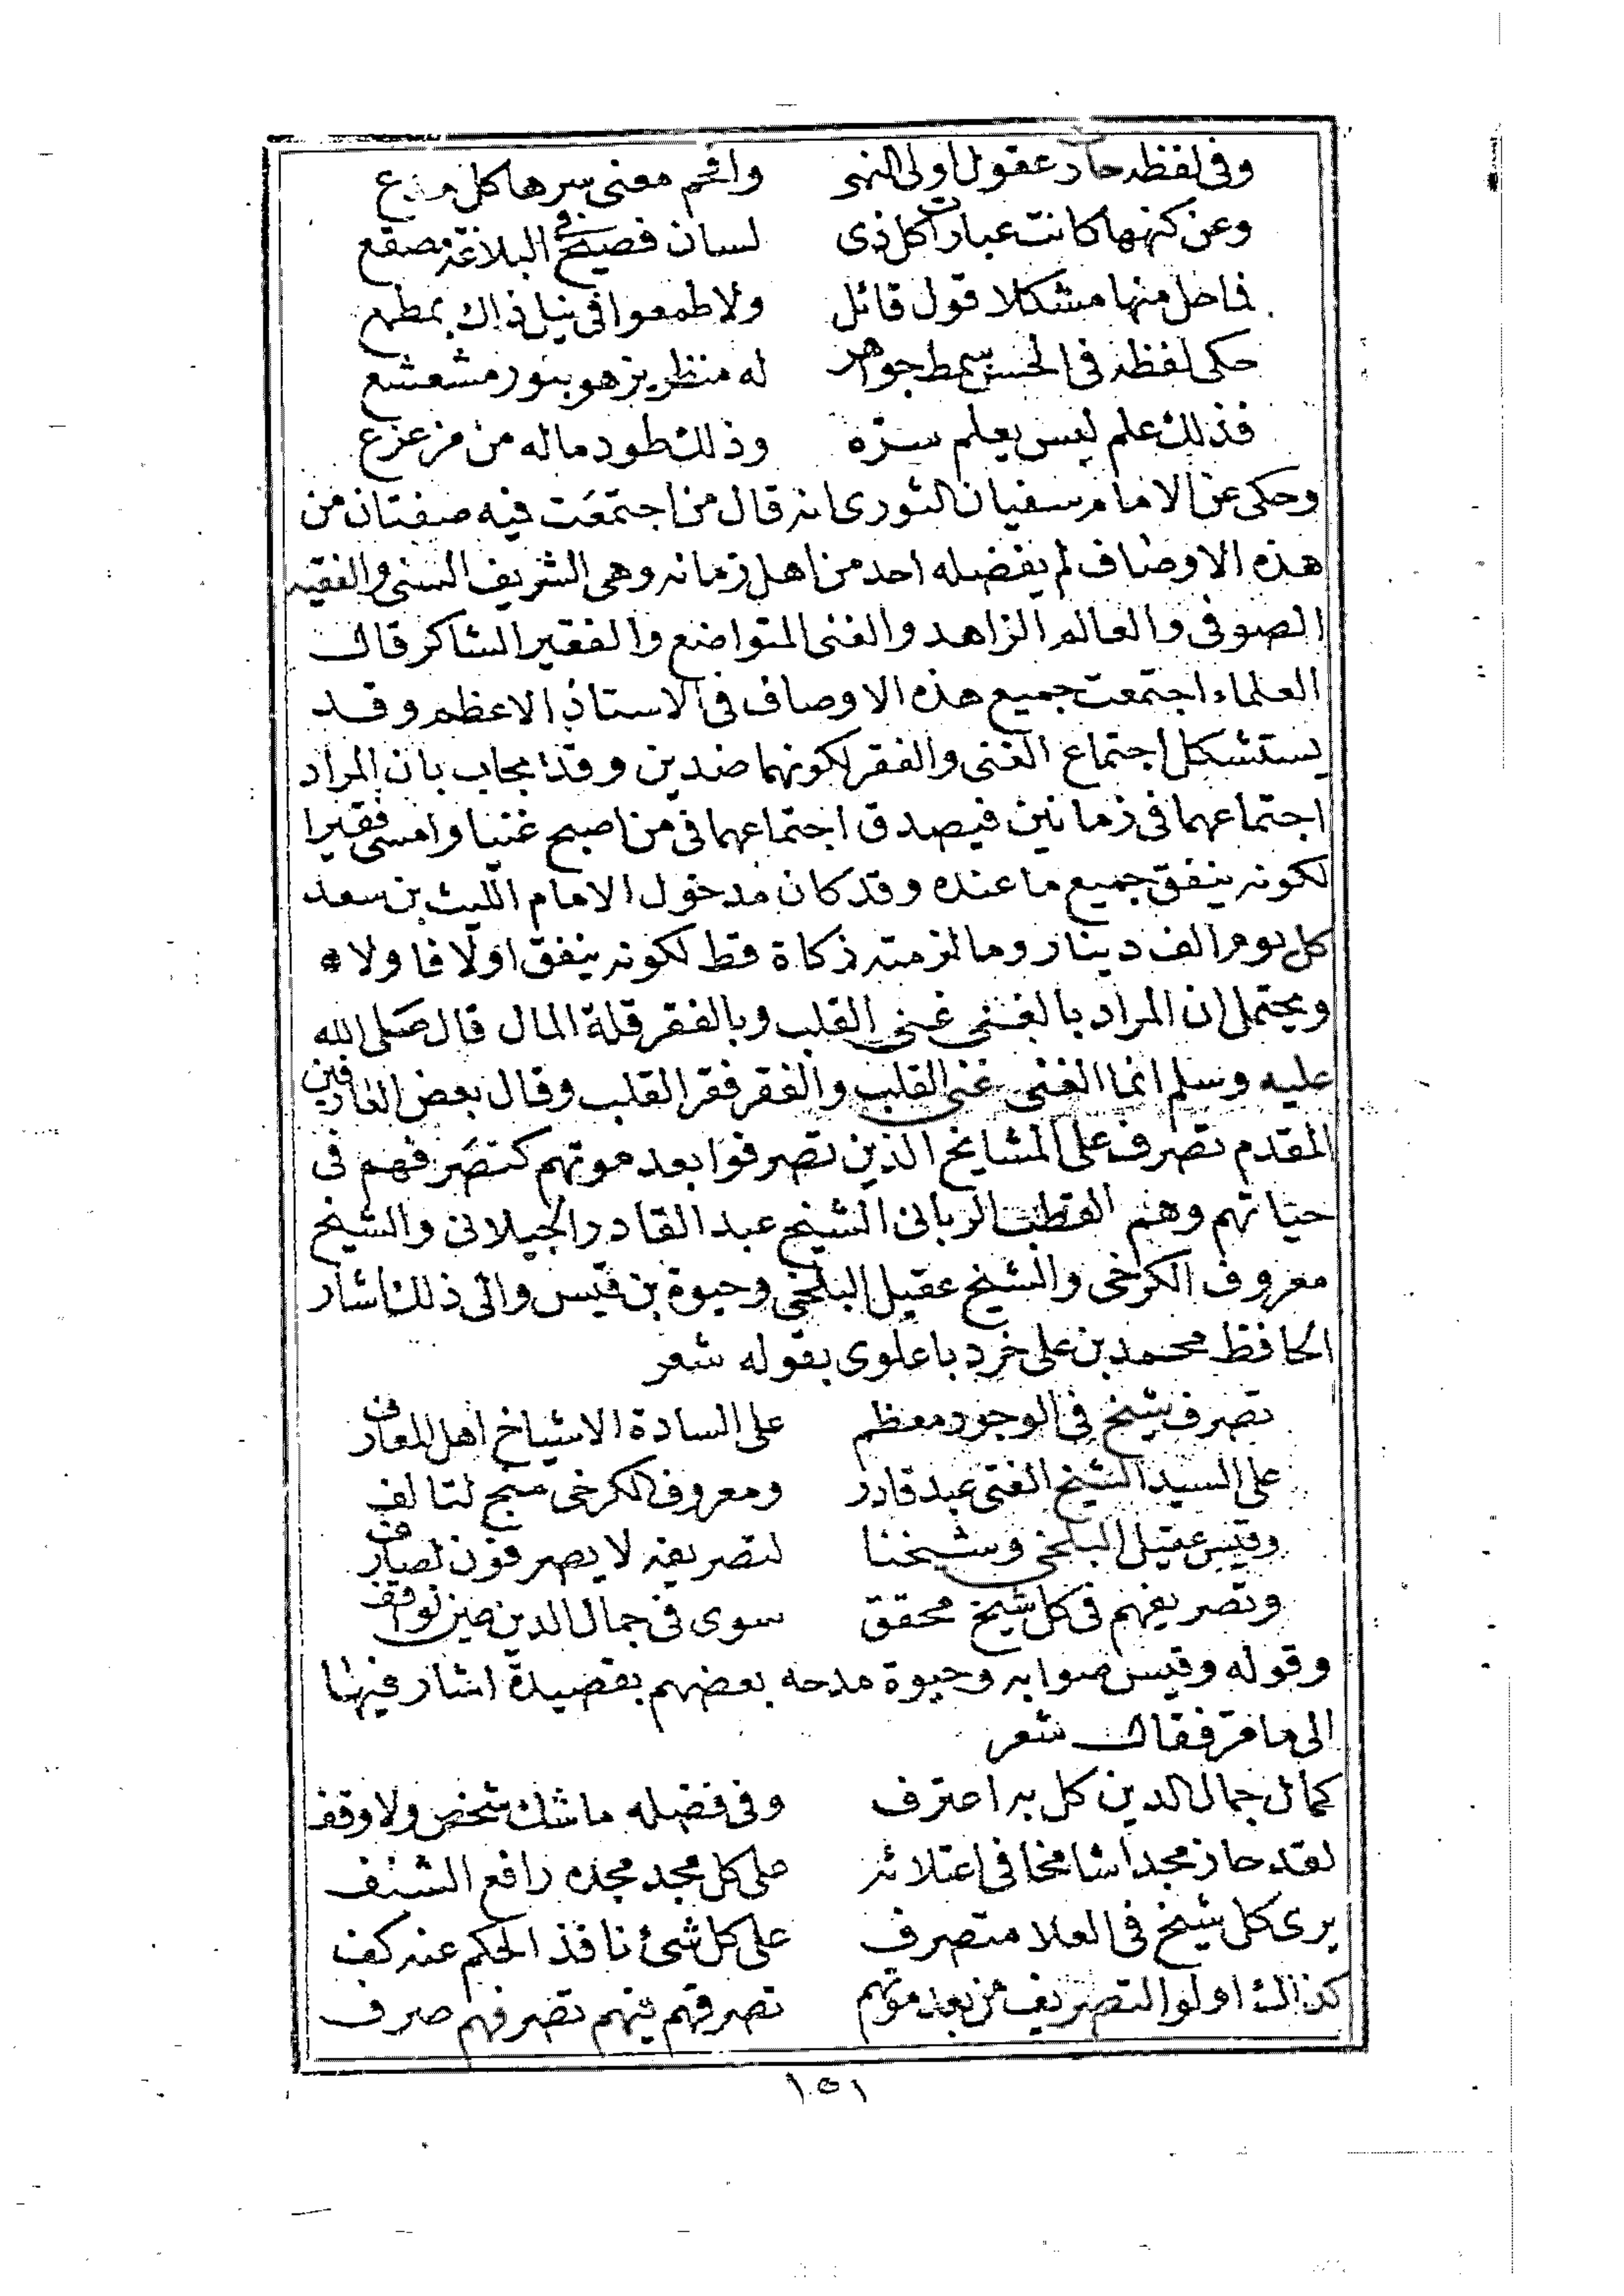 وفى لفظه حار عقول اولى النهى وافحم معنى سرها كل
وعن كنهها كانت عبارات كل ذى لسان فصيح فى البلاغة مصقع
فما حل منها مشكلا قول قائل ولا طمعوا فى نيل ذاك بمطمع
حكى لفظه فى الحسن سمط جواهر له منظر يزهو بنور مشعشع
فذلك علم ليس يعلم سره وذلك طود ماله من مزعزع
وحكى عن الامام سفيان الثورى انه قال من اجتمعت فيه صفتان من
هذه الاوصاف لم يفضله احد من اهل زمانه وهى الشريف السنى والفقيه
الصوفى والعالم الزاهد والغنى المتواضع والفقير الشاكر قال
العلماء اجتمعت جميع هذه الاوصاف فى الاستاذ الاعظم وقد
يستشكل اجتماع الغنى والفقر لكونهما ضدين وقد يجاب بان المراد
اجتماعهما فى زمانين فيصدق اجتماعهما فى من اصبح غنيا وامسى فقيرا
لكونه ينفق جميع ما عنده وقد كان مدخول الامام الليث بن سعد
كل يوم الف دينار وما لزمته زكاة قط لكونه ينفق اولا فاولا *
ويحتمل ان المراد بالغنى غنى القلب وبالفقر قلة المال قال صلى الله
عليه وسلم انما الغنى غنى القلب والفقر فقر القلب وقال بعض العارفين
المقدم تصرف على المشايخ الذين تصرفوا بعد موتهم كتصرفهم فى
حياتهم وهم القطب الربانى الشيخ عبد القادر الجيلانى والشيخ
معروف الكرخى والشيخ عقيل البلخى وحيوة بن قيس والى ذلك اشار
الحافظ محمد بن على خرد باعلوى بقوله شعر
تصرف شيخ فى الوجود معظم على السادة الاشياخ اهل المعارف
على السيد الشيخ الفتى عبد قادر ومعروف الكرخى لتالف
وقيس عقيل البلخى وشيخنا لتصريفه لا يصرفون لصارف
وتصريفهم فى كل شيخ محقق سوى فى جمال الدين
وقوله وقيس صوابه وحيوة مدحه بعضهم بقصيدة اشار فيها
الى ما مر فقال شعر
كمال جمال الدين كل به اعترف وفى فضله ما شك شخص ولا وقف
لقد حاز مجدا شامخا فى اعتلائه على كل مجد مجده رافع الشنف
يرى كل شيخ فى العلا متصرف على كل شئ نافذ الحكم عنه كف
كذاك اولوا التصريف من بعد موتهم تصرفهم فيهم تصرفهم صرف
١٥١